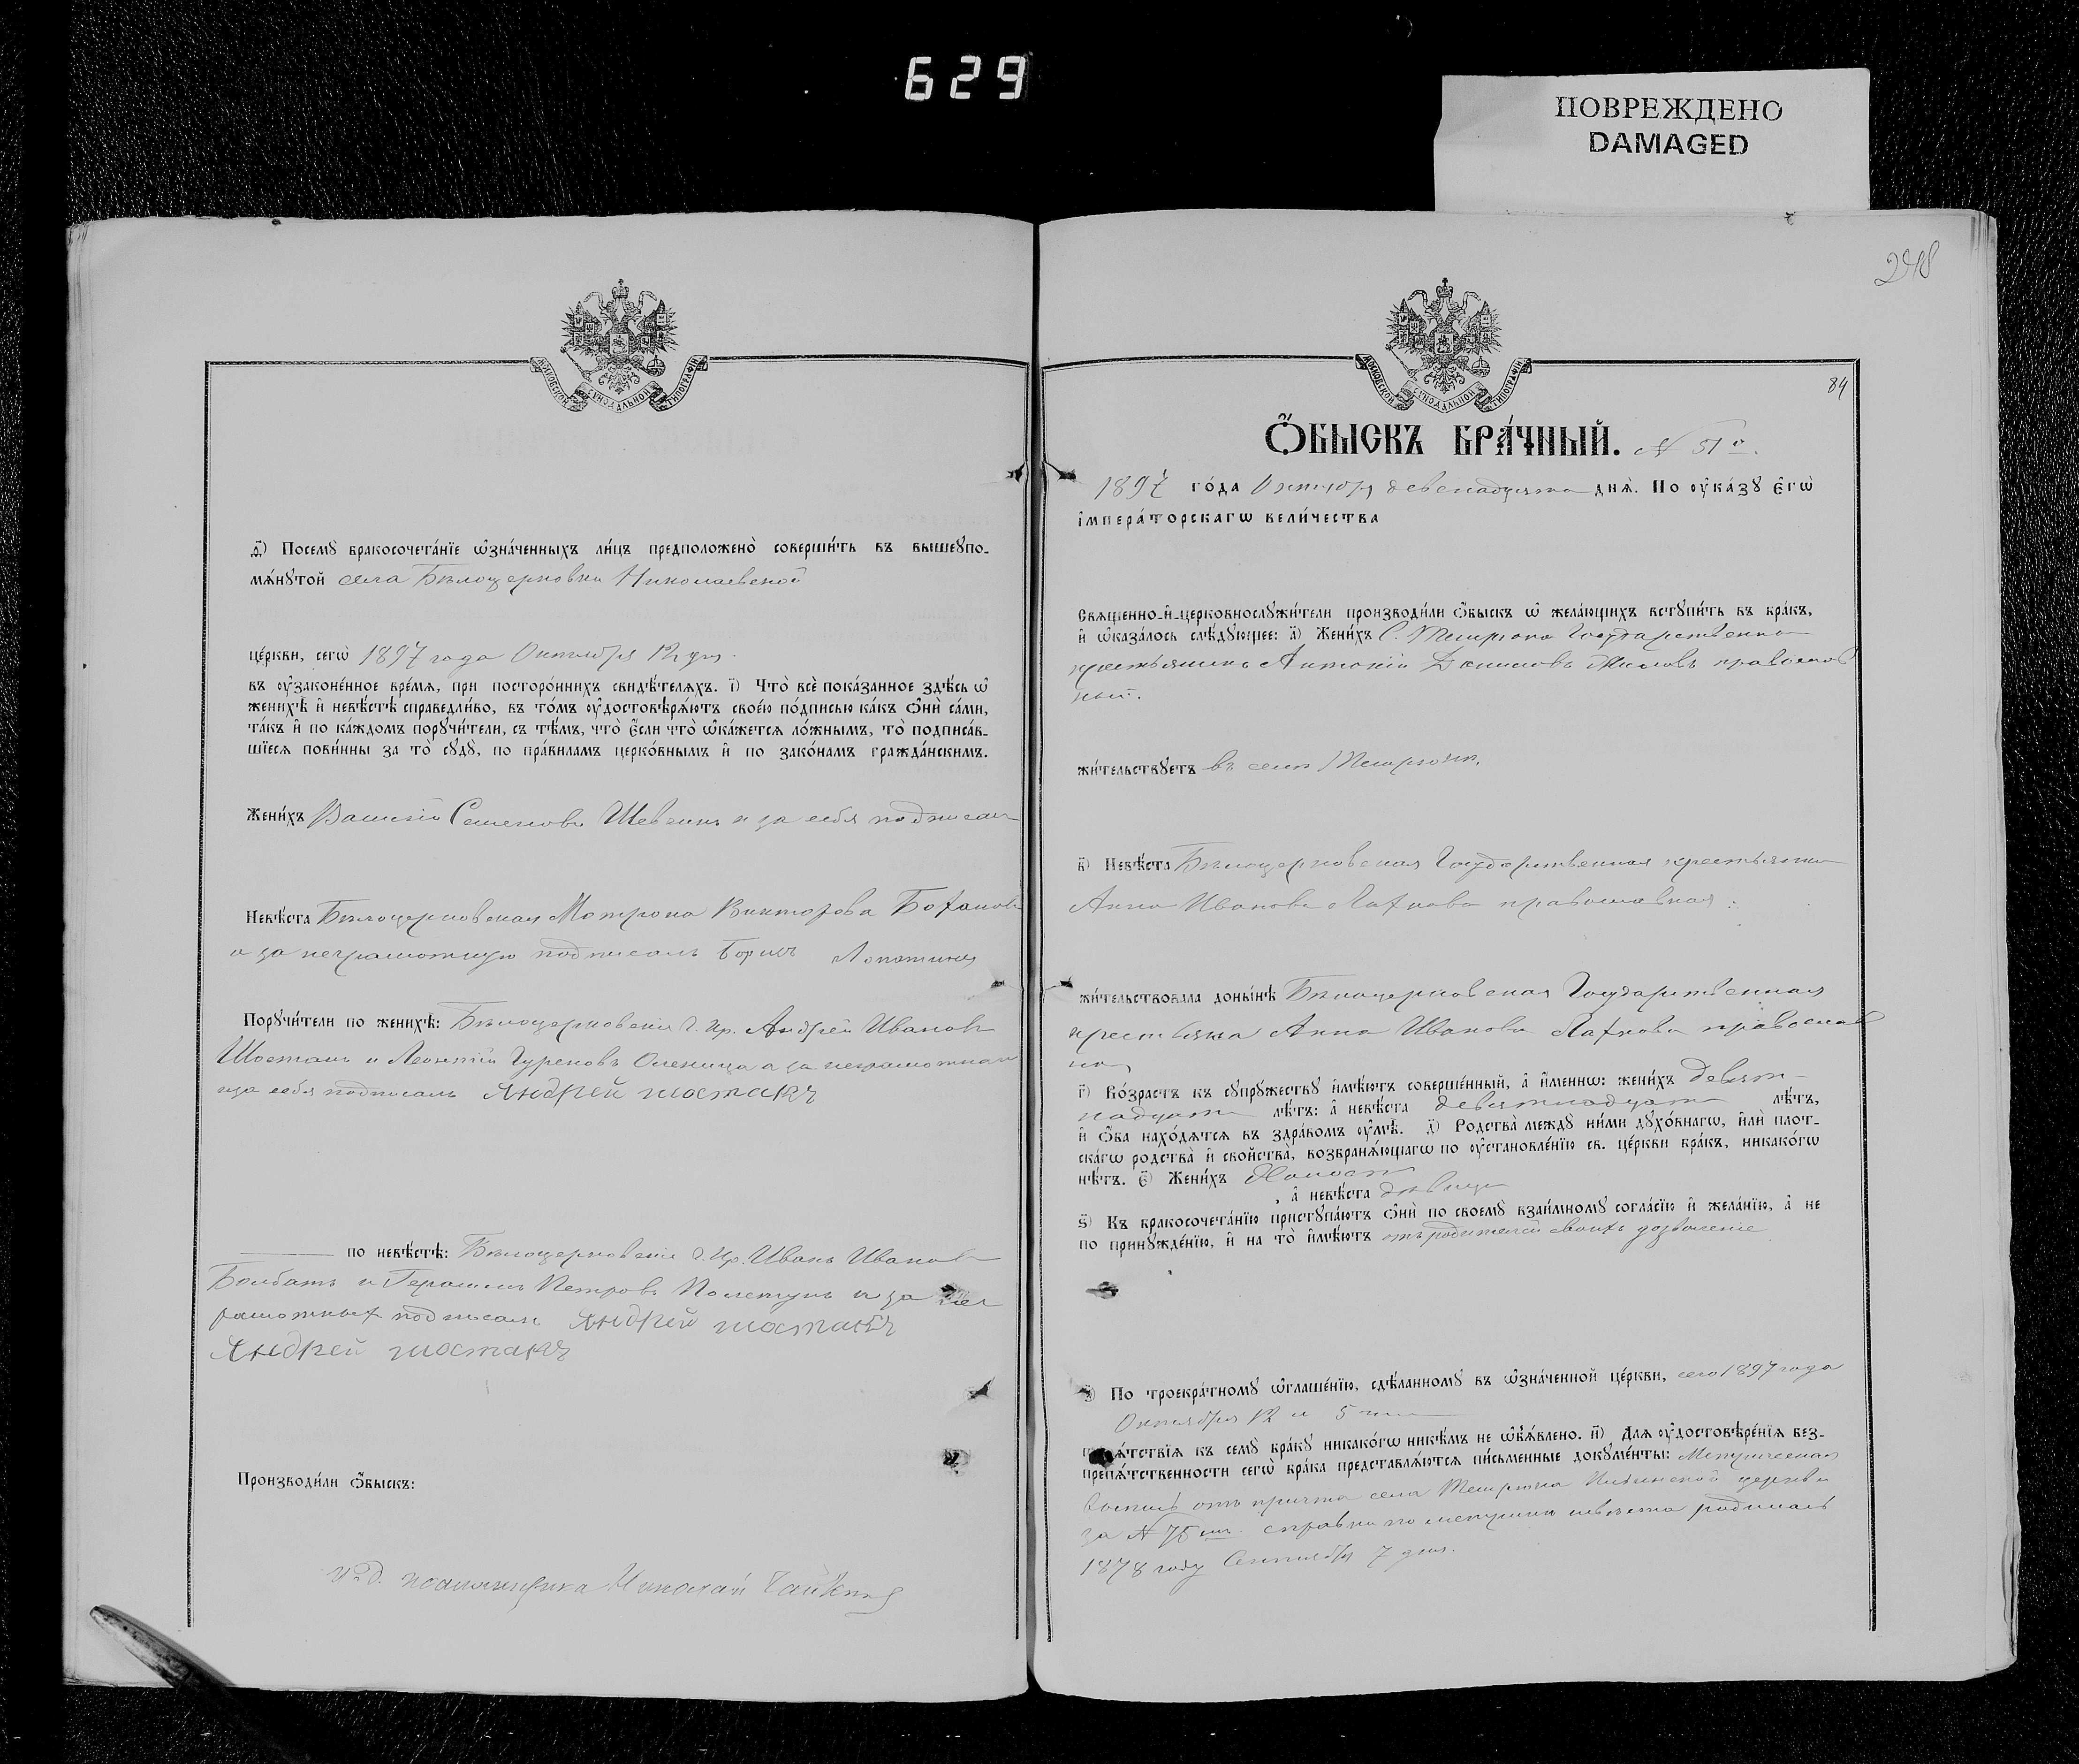 629
ПОВРЕЖДЕНО
DAMAGED
д҃) Посемꙋ бракосочета́нїе ѡ҆зна́ченныхъ ли́цъ предположено̀ соверши́ть въ вышеꙋпо-
мѧ́нꙋтой села Бѣлоцерковки Николаевской
це́ркви, сегѡ̀ 1897 года Октября 12 дня.
въ ᲂу҆законе́нное вре́мѧ, при посторо́ннихъ свидѣ́телѧхъ. і҃) Что̀ всѐ пока́занное здѣ́сь ѡ҆
женихѣ̀ и҆ невѣ́стѣ справедли́во, въ то́мъ ᲂу҆достовѣрѧ́ютъ свое́ю по́дписью ка́къ ѻ҆нѝ са́ми,
та́къ и҆ по ка́ждомъ порꙋчи́тели, съ тѣ́мъ, что̀ є҆́сли что̀ ѡ҆ка́жетсѧ ло́жнымъ, то̀ подписа́в-
шїесѧ пови́нны за то̀ сꙋдꙋ̀, по пра́виламъ церко́внымъ и҆ по зако́намъ гражда́нскимъ.
Жени́хъ Василій Семеновъ и за себя подписал
Невѣ́ста Бѣлоцерковская Матрона Викторова
а за неграмотную подписалъ Борисъ Лопатинъ
Порꙋчи́тели по женихѣ̀: Бѣлоцерковскіе г. кр. Андрей Ивановъ
Шостакъ и Леонтій а за неграмотнаго
и за себя подписалъ Андрей шостакъ
по невѣ́стѣ: Бѣлоцерковскіе г. кр. Иванъ Ивановъ
и Герасимъ Петровъ а за нег
рамотных подписалъ Андрей шостакъ
Андрей шостакъ
Производи́ли ѻ҆́быскъ:
и. д. псаломщика Николай
248
84
ХАРЬКОВСКОЙ СѴНОДАЛЬНОЙ ТИПОГРАФІИ
Ѻ҆́БЫСКЪ БРА́ЧНЫЙ. № 51й.
1897 го́да Октября двенадцатаго днѧ̀. По ᲂу҆ка́зꙋ є҆гѡ̀
і҆мпера́торскагѡ вели́чества
Свѧще́нно-и҆-церковнослꙋжи́тели производи́ли ѻ҆́быскъ ѡ҆ жела́ющихъ встꙋпи́ть въ бра́къ,
и҆ ѡ҆каза́лось слѣ́дꙋющее: а҃) Жени́хъ С. Темрюка Государственно
крестьянинъ Антоній православ
ный.
жи́тельствꙋетъ въ селѣ Темрюкѣ.
в҃) Невѣ́ста Бѣлоцерковская Государственная крестьянка
Анна Иванова православная.
жи́тельствовала доны́нѣ Бѣлоцерковская Государственная
крестьянка Анна Иванова православ
на
г҃) Во́зрастъ къ сꙋпрꙋ́жествꙋ и҆мѣ́ютъ соверше́нный, а҆ и҆́менно: жени́хъ девят
надцат лѣ́тъ: а҆ невѣ́ста девятнадцат лѣ́тъ,
и҆ ѻ҆́ба нахо́дѧтсѧ въ здра́вомъ ᲂу҆мѣ̀. д҃) Родства̀ междꙋ ни́ми дꙋхо́внагѡ, и҆лѝ плот-
ска́гѡ родства̀ и҆ свойства̀, возбранѧ́ющагѡ по ᲂу҆становле́нїю св. це́ркви бра́къ, никако́гѡ
нѣ́тъ. є҃) Жени́хъ Холост
, а҆ невѣ́ста дѣвица
ѕ҃) Къ бракосочета́нїю пристꙋпа́ютъ ѻ҆нѝ по своемꙋ̀ взаи́мномꙋ согла́сїю и҆ жела́нїю, а҆ не
по принꙋжде́нїю, и҆ на то̀ и҆мѣ́ютъ отъ родителей своихъ дозволеніе
з҃) По троекра́тномꙋ ѡ҆глаше́нїю, сдѣ́ланномꙋ въ ѡ҆зна́ченной це́ркви, сего 1897 года
Октября 12 и 5
препѧ́тствїѧ къ семꙋ̀ бра́кꙋ никако́гѡ никѣ́мъ не ѡ҆б̾ѧ́влено. и҃) Длѧ ᲂу҆достовѣре́нїѧ без-
препѧ́тственности сегѡ̀ бра́ка представлѧ́ютсѧ пи́сьменные докꙋме́нты: Метрическая
выпись отъ причта села Темрюка церкви
за № 75 справки по метрикѣ невѣста родилась
1878 году Сентября 7 дня.